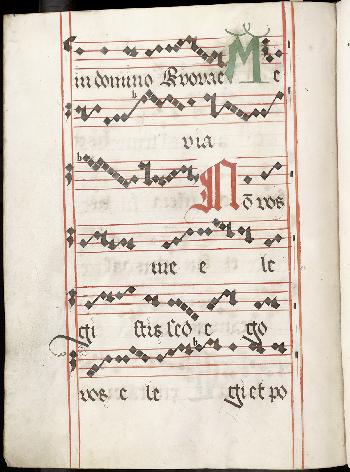 in domino Evovae Me
via
Nō vos
me e le
gi stis sed e go
vos e le gi et po